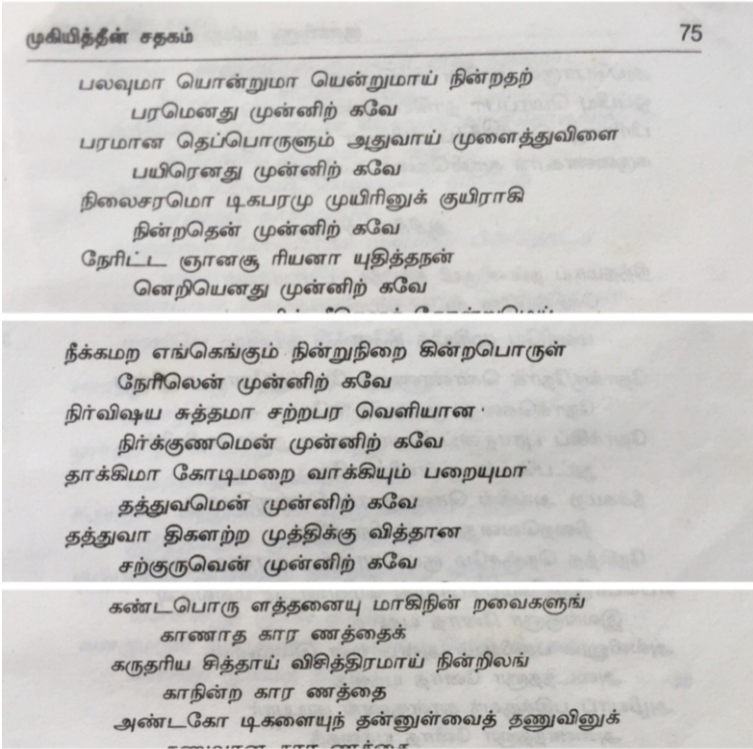 முகியித்தீன் சதகம் 75
பலவுமா யொன்றுமா யென்றுமாய் நின்றதற்
பரமெனது முன்னிற் கவே
பரமான தெப்பொருளும் அதுவாய் முளைத்துவிளை
பயிரெனது முன்னிற் கவே
நிலைசரமொ டிகபரமு முயிரினுக் குயிராகி
நின்றதென் முன்னிற் கவே
நேரிட்ட ஞானசூ ரியனா யுதித்தநன்
னெறியெனது முன்னிற் கவே
நீக்கமற எங்கெங்கும் நின்றுநிறை கின்றபொருள்
நேரிலென் முன்னிற் கவே
நிர்விஷய சுத்தமா சற்றபர வெளியான
நிர்க்குணமென் முன்னிற் கவே
தாக்கிமா கோடிமறை வாக்கியும் பறையுமா
தத்துவமென் முன்னிற் கவே
தத்துவா திகளற்ற முத்திக்கு வித்தான
சற்குருவென் முன்னிற் கவே
கண்டபொரு ளத்தனையு மாகிநின் றவைகளுங்
காணாத கார ணத்தைக்
கருதரிய சித்தாய் விசித்திரமாய் நின்றிலங்
காநின்ற கார ணத்தை
அண்டகோ டிகளையுந் தன்னுள்வைத் தணுவினுக்